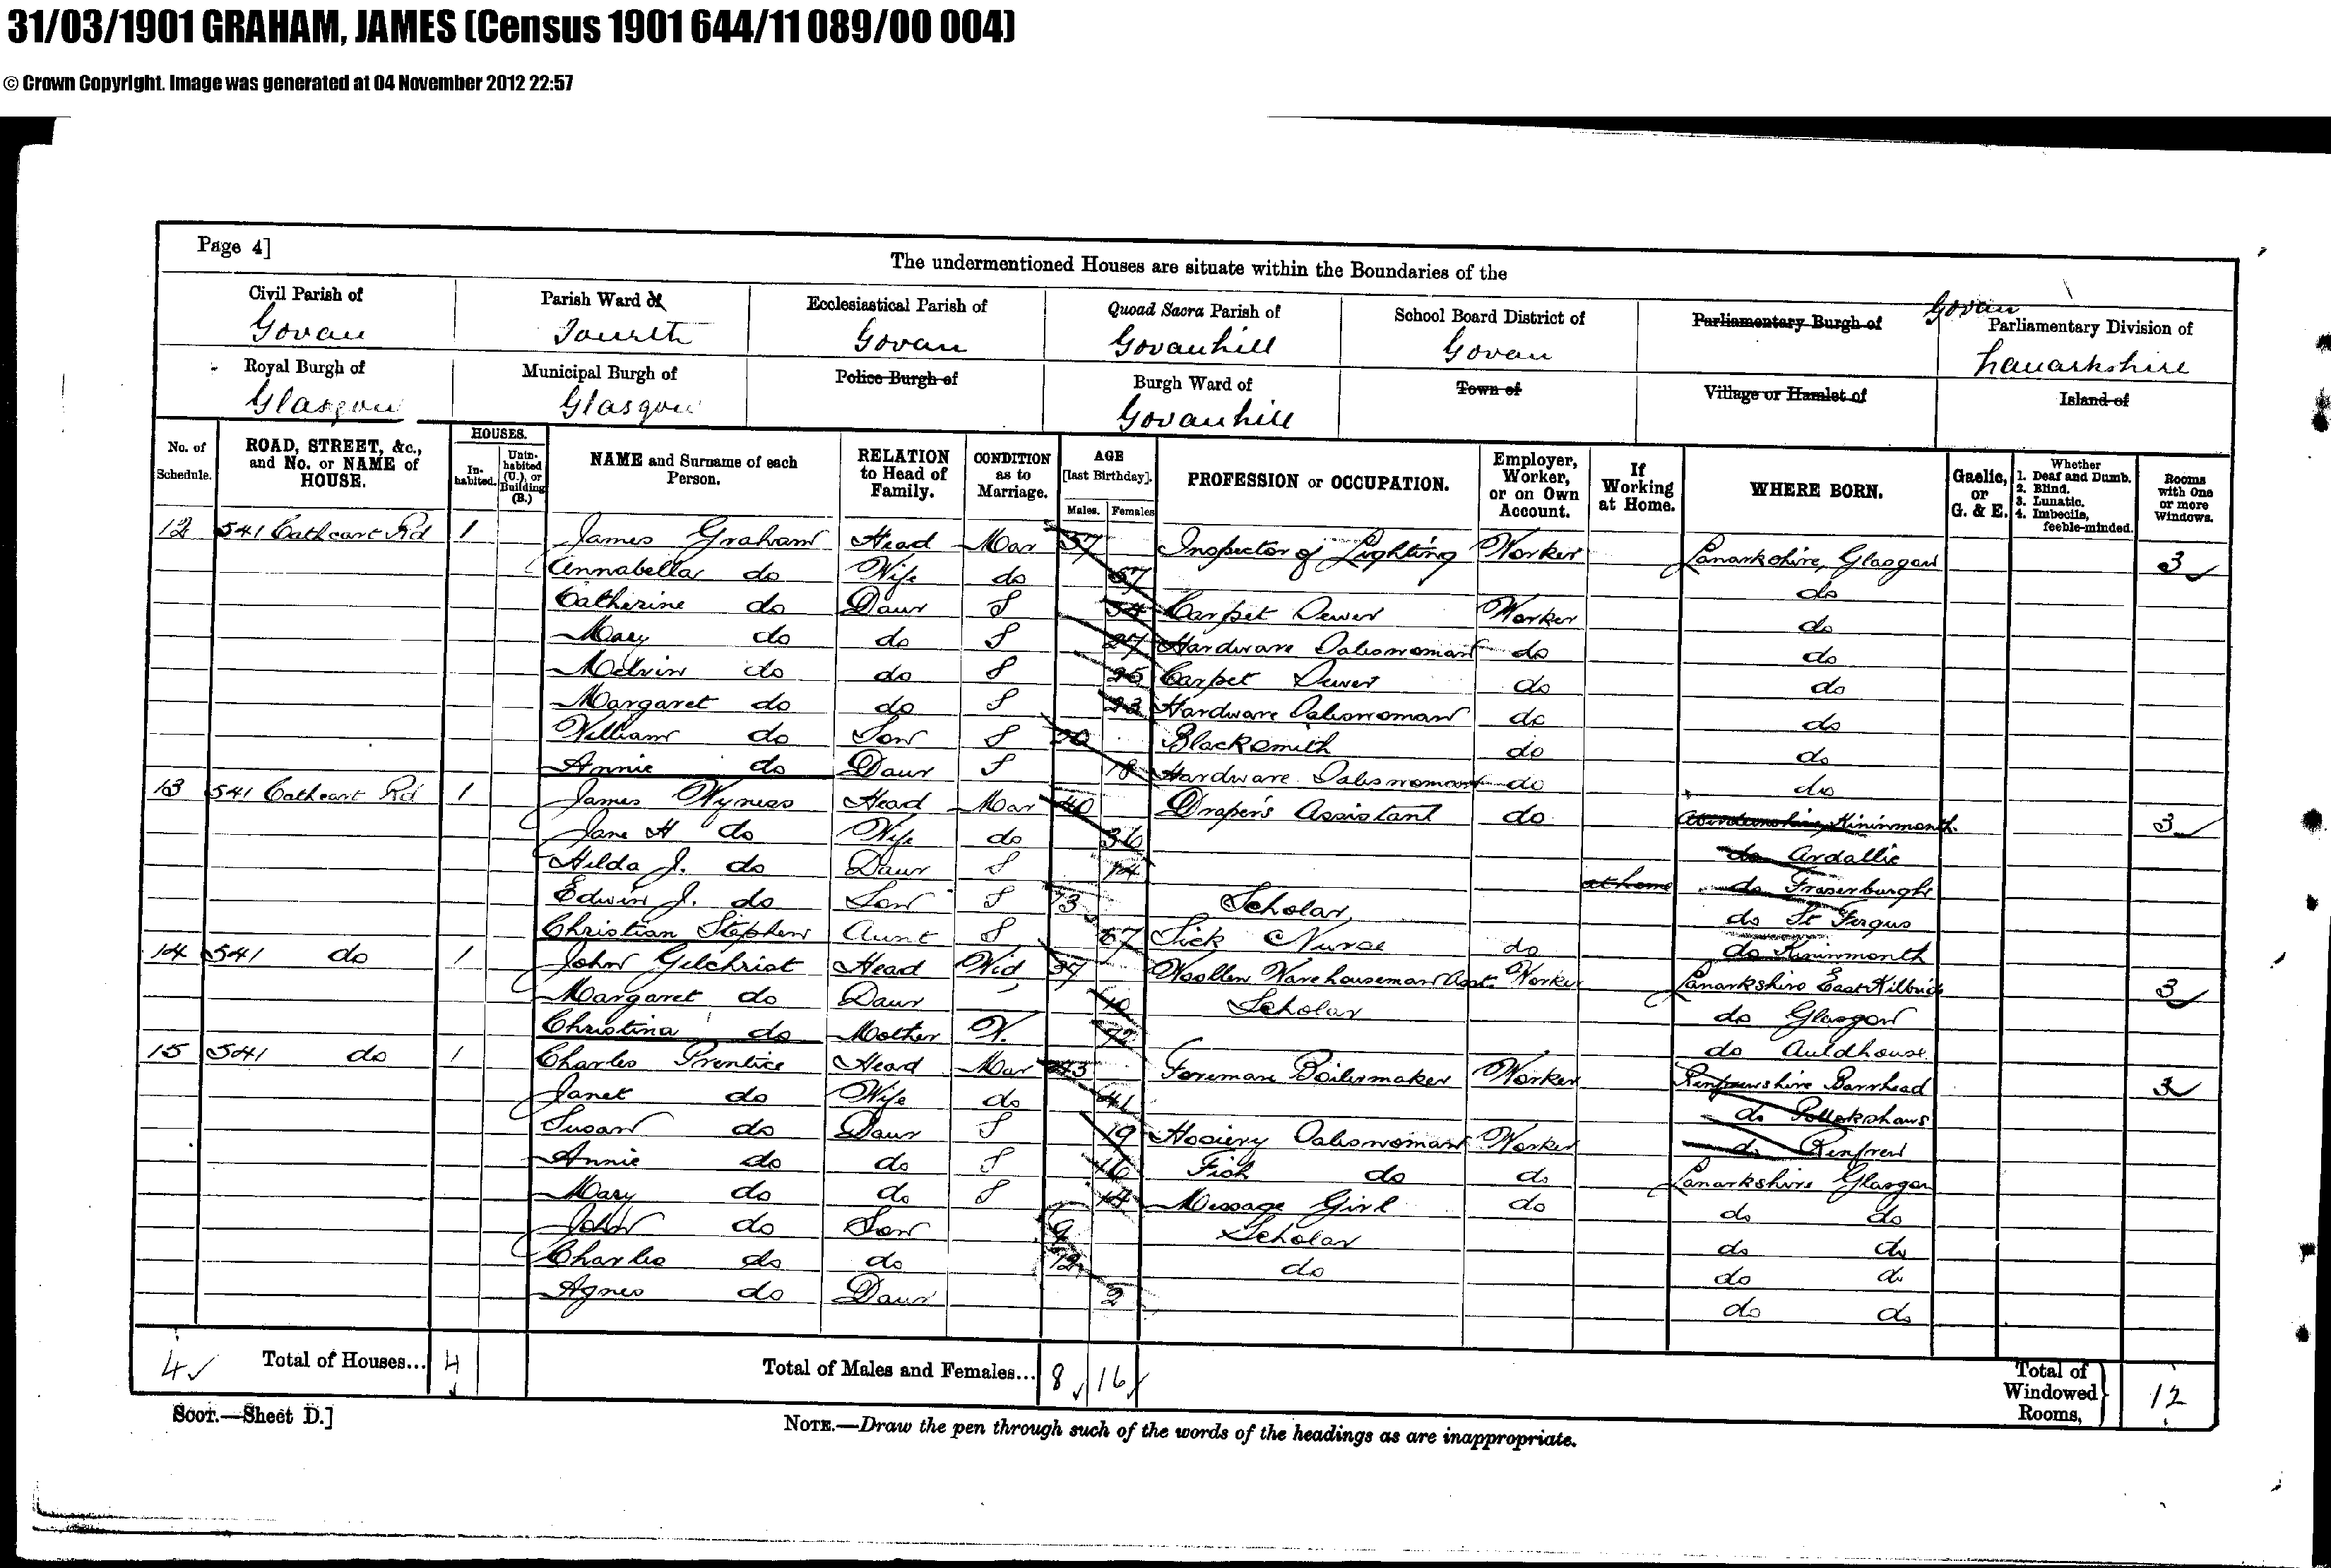 31/03/1901 GRAHAM, JAMES (Census 1901 644/11 089/00 004)
© Crown Copyright. Image was generated at 04 November 2012 22:57
Page 4]
The undermentioned Houses are situate within the Boundaries of the
Civil Parish of Govan
Parish Ward of Fourth
Ecclesiastical Parish of Govan
Quoad Sacra Parish of Govanhill
School Board District of Govan
Parliamentary Burgh of
Govan Parliamentary Division of Lanarkshire
Royal Burgh of Glasgow
Municipal Burgh of Glasgow
Police Burgh of
Burgh Ward of Govanhill
Town of
Village or Hamlet of
Island of
No. of Schedule.
ROAD, STREET, &c., and No. or NAME of HOUSE.
HOUSES.
In-habited.
Unin-habited (U.), or Building (B.)
NAME and Surname of each Person.
RELATION to Head of Family.
CONDITION as to Marriage.
AGE [last Birthday].
Males. Females
PROFESSION or OCCUPATION.
Employer, Worker, or on Own Account.
If Working at Home.
WHERE BORN.
Gaelic, or G. & E.
Whether 1. Deaf and Dumb. 2. Blind. 3. Lunatic. 4. Imbecile, feeble-minded.
Rooms with One or more Windows.
12 541 Cathcart Rd 1 James Graham Head Mar 57 Inspector of Lighting Worker Lanarkshire, Glasgow 3
Annabella do Wife do 57 do
Catherine do Daur S 34 Carpet Sewer Worker do
Mary do do S 27 Hardware Saleswoman do do
Melvin do do S 25 Carpet Sewer do do
Margaret do do S 23 Hardware Saleswoman do do
William do Son S 20 Blacksmith do do
Annie do Daur S 18 Hardware Saleswoman do do
13 541 Cathcart Rd 1 James Wyness Head Mar 40 Draper's Assistant do Aberdeenshire, Kininmonth 3
Jane H do Wife do 36 do Ardallie
Hilda J. do Daur S 14 at home do Fraserburgh
Edwin J. do Son S 13 Scholar do St Fergus
Christian Stephen Aunt S 67 Sick Nurse do do Kininmonth
14 541 do 1 John Gilchrist Head Wid 37 Woollen Warehouseman Asst. Worker Lanarkshire East Kilbride 3
Margaret do Daur 10 Scholar do Glasgow
Christina do Mother W. 72 do Auldhouse
15 541 do 1 Charles Prentice Head Mar 43 Foreman Boilermaker Worker Renfrewshire Barrhead 3
Janet do Wife do 41 do Pollokshaws
Susan do Daur S 19 Hosiery Saleswoman Worker do Renfrew
Annie do do S 16 Fish do do Lanarkshire Glasgow
Mary do do S 14 Message Girl do do do
John do Son 9 Scholar do do
Charles do do 12 do do do
Agnes do Daur 2 do do
4 Total of Houses... 4
Total of Males and Females... 8 16
Total of Windowed Rooms, 12
SCOT.—Sheet D.]
NOTE.—Draw the pen through such of the words of the headings as are inappropriate.